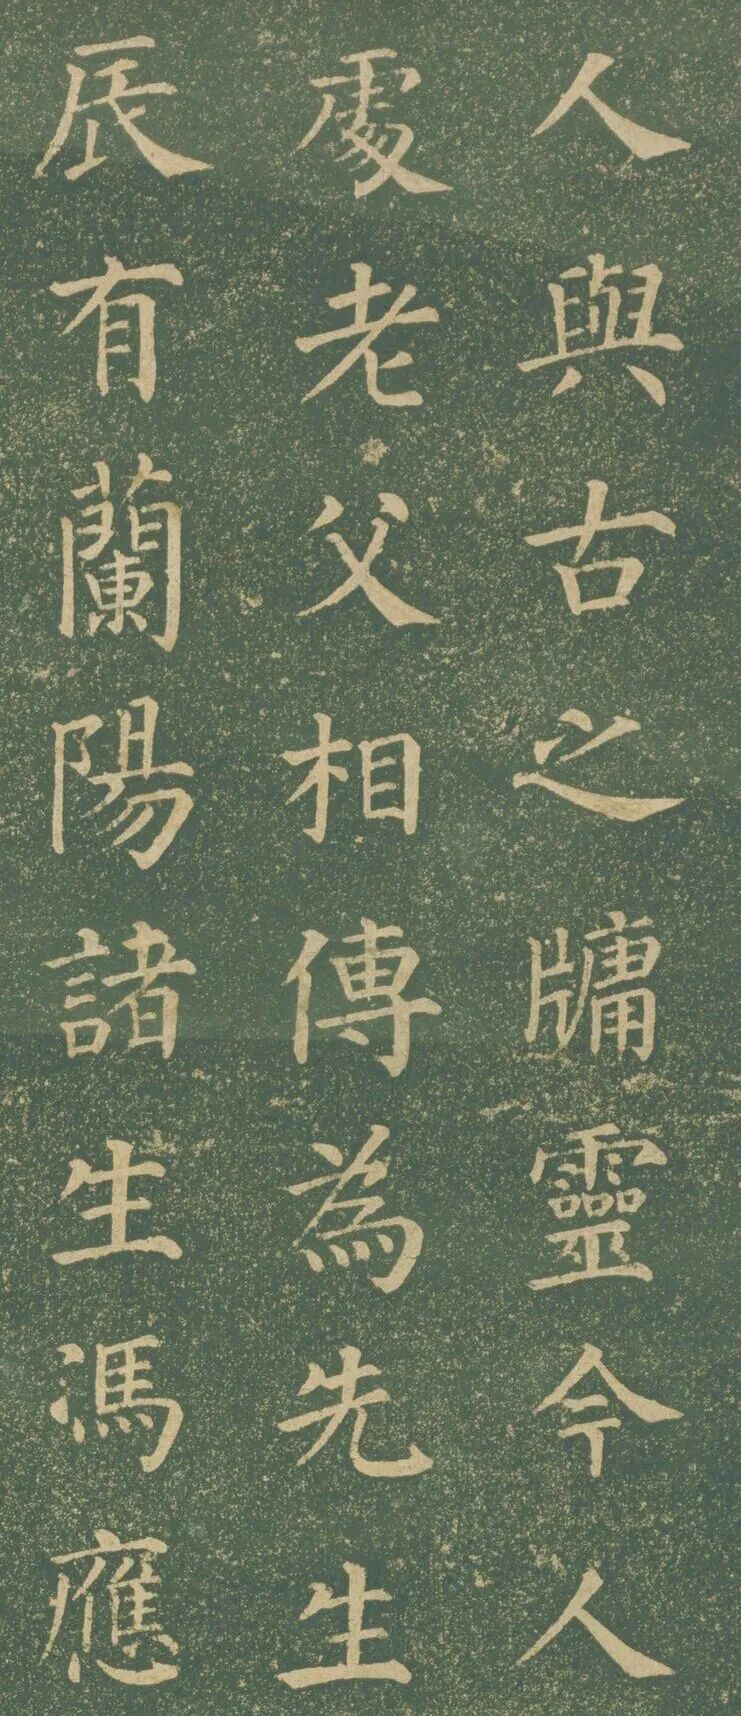 人與古之牗靈今人
處老父相傳為先生
辰有蘭陽諸生馮應